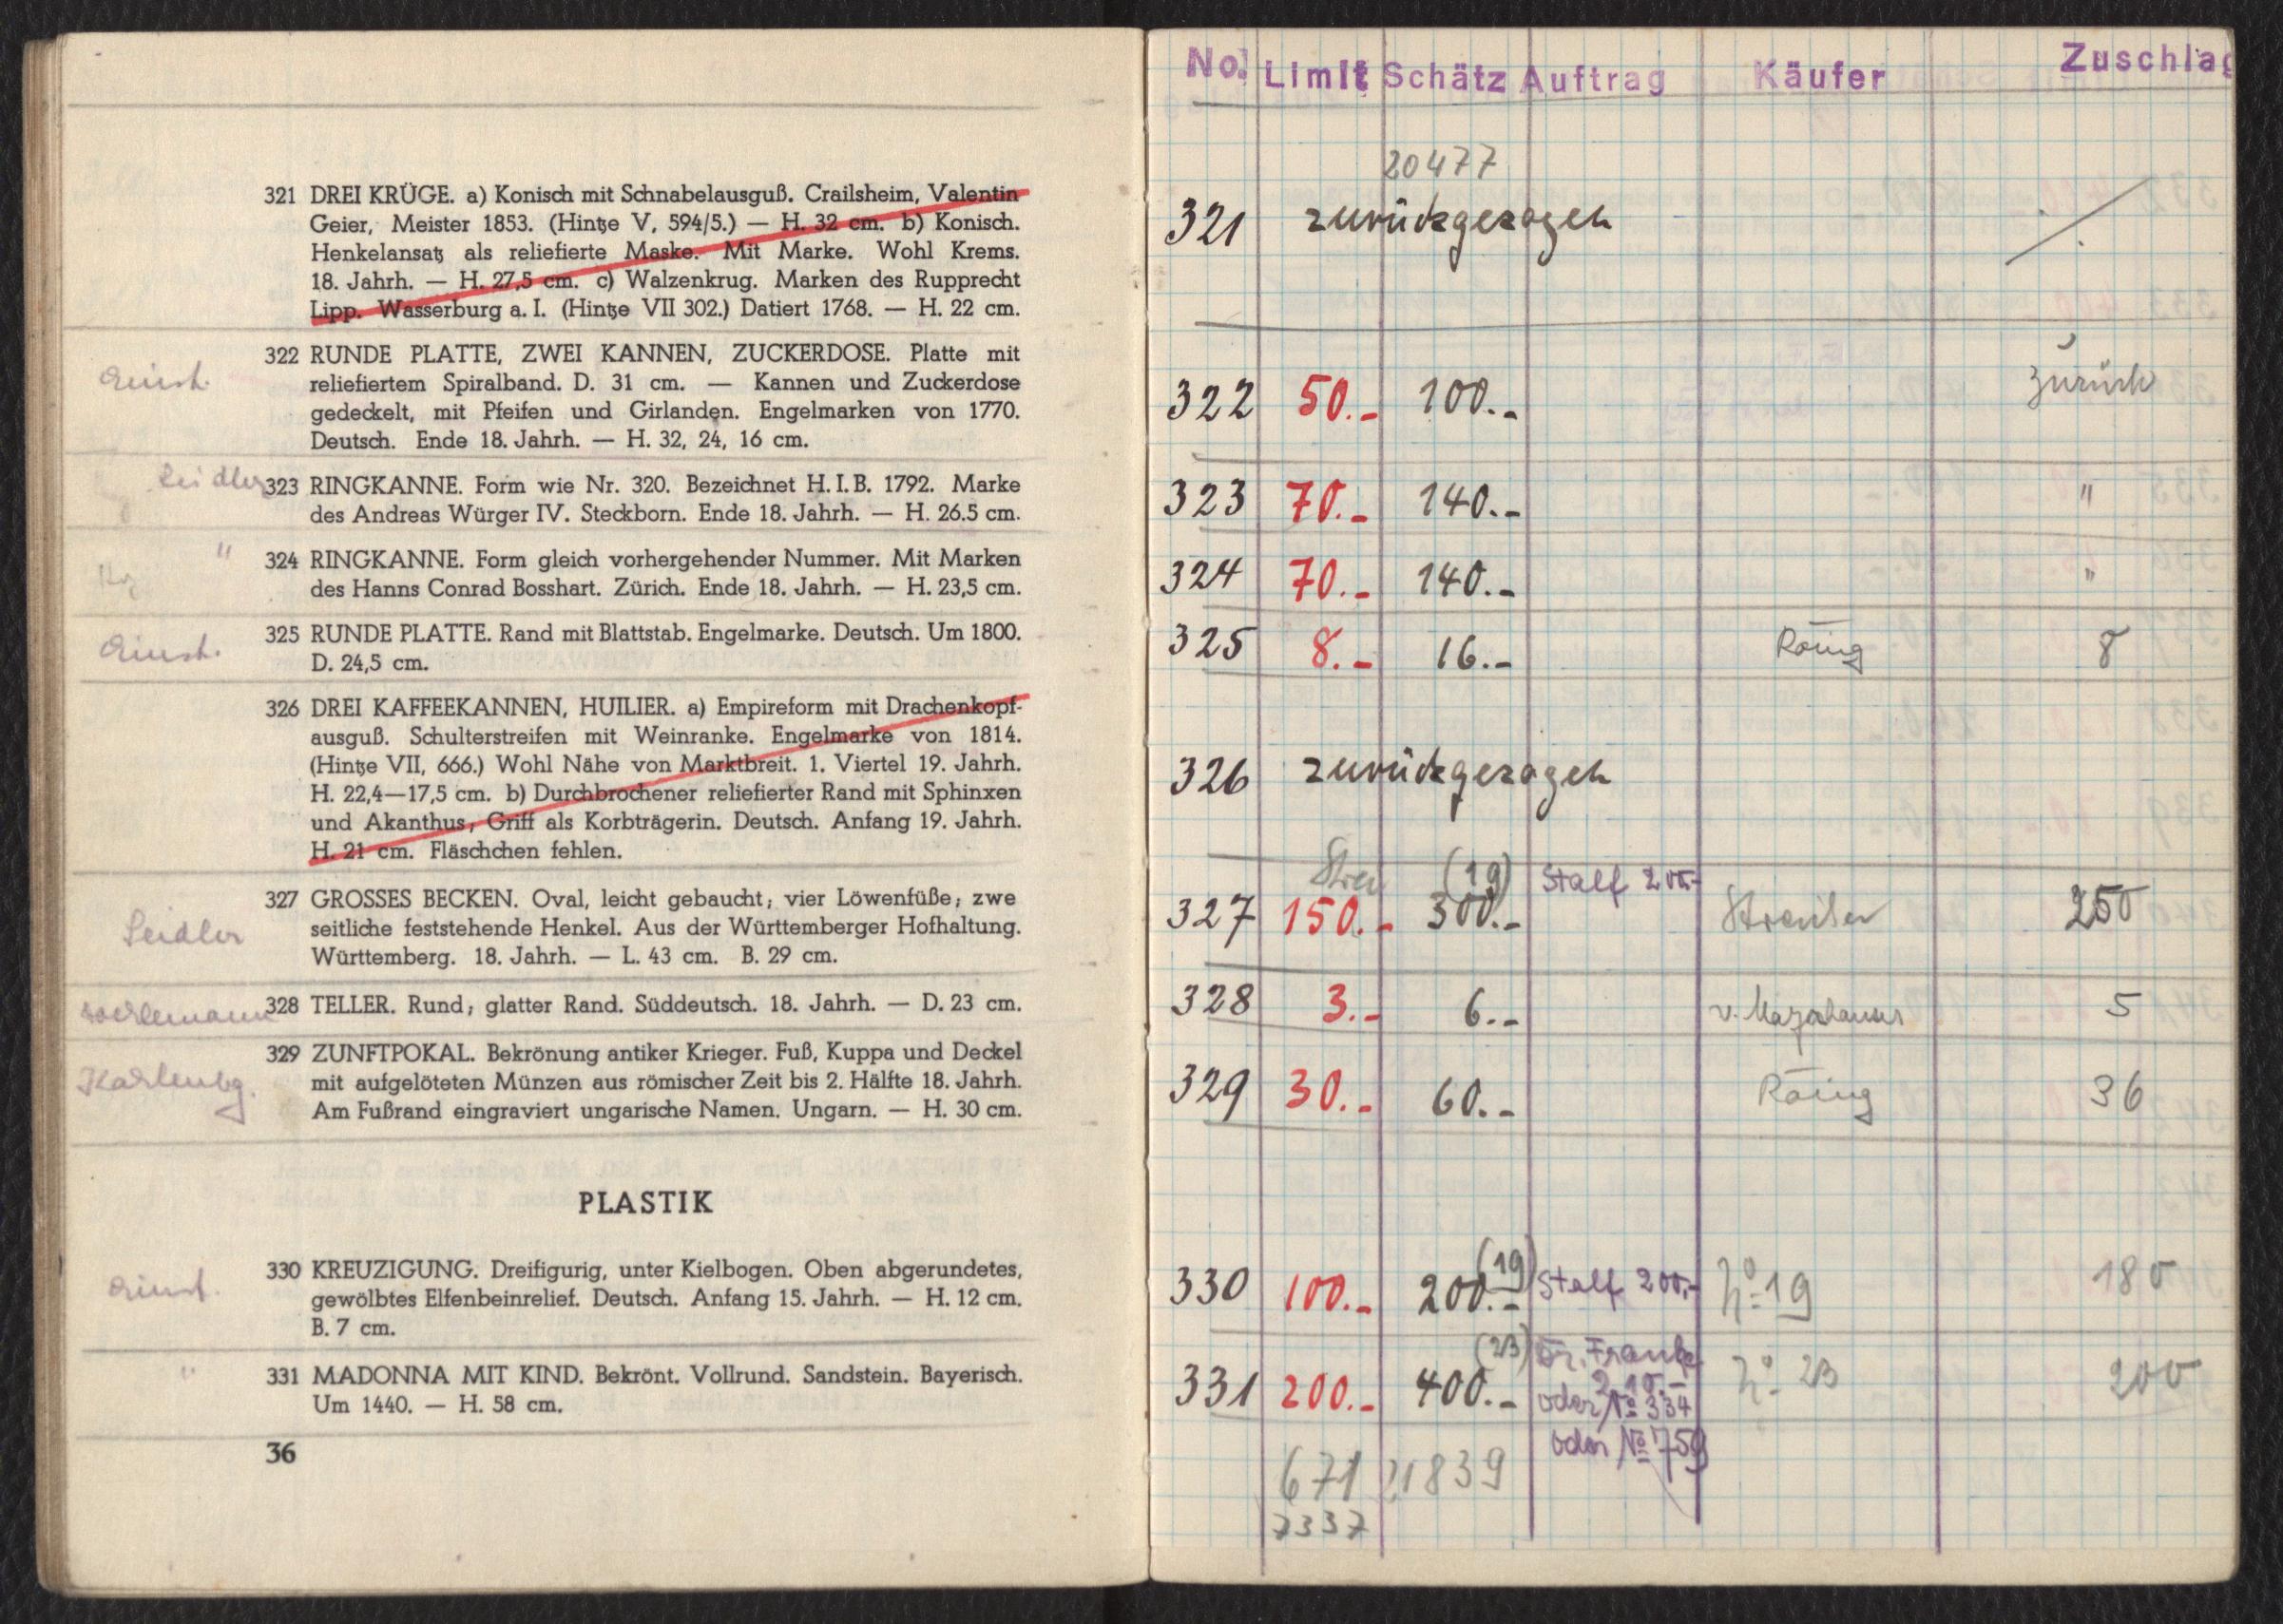 321 DREI KRÜGE. a) Konisch mit Schnabelausguß. Crailsheim, Valentin
Geier, Meister 1853. (Hintze V, 594/5.) — H. 32 cm. b) Konisch.
Henkelansatz als reliefierte Maske. Mit Marke. Wohl Krems.
18. Jahrh. — H. 27,5 cm. c) Walzenkrug. Marken des Rupprecht
Lipp. Wasserburg a. I. (Hintze VII 302.) Datiert 1768. — H. 22 cm.
322 RUNDE PLATTE, ZWEI KANNEN, ZUCKERDOSE. Platte mit
reliefiertem Spiralband. D. 31 cm. — Kannen und Zuckerdose
gedeckelt, mit Pfeifen und Girlanden. Engelmarken von 1770.
Deutsch. Ende 18. Jahrh. — H. 32, 24, 16 cm.
Seidler 323 RINGKANNE. Form wie Nr. 320. Bezeichnet H. I. B. 1792. Marke
des Andreas Würger IV. Steckborn. Ende 18. Jahrh. — H. 26.5 cm.
" 324 RINGKANNE. Form gleich vorhergehender Nummer. Mit Marken
des Hanns Conrad Bosshart. Zürich. Ende 18. Jahrh. — H. 23,5 cm.
325 RUNDE PLATTE. Rand mit Blattstab. Engelmarke. Deutsch. Um 1800.
D. 24,5 cm.
326 DREI KAFFEEKANNEN, HUILIER. a) Empireform mit Drachenkopf-
ausguß. Schulterstreifen mit Weinranke. Engelmarke von 1814.
(Hintze VII, 666.) Wohl Nähe von Marktbreit. 1. Viertel 19. Jahrh.
H. 22,4—17,5 cm. b) Durchbrochener reliefierter Rand mit Sphinxen
und Akanthus, Griff als Korbträgerin. Deutsch. Anfang 19. Jahrh.
H. 21 cm. Fläschchen fehlen.
327 GROSSES BECKEN. Oval, leicht gebaucht; vier Löwenfüße; zwe
Seidler seitliche feststehende Henkel. Aus der Württemberger Hofhaltung.
Württemberg. 18. Jahrh. — L. 43 cm. B. 29 cm.
328 TELLER. Rund; glatter Rand. Süddeutsch. 18. Jahrh. — D. 23 cm.
329 ZUNFTPOKAL. Bekrönung antiker Krieger. Fuß, Kuppa und Deckel
mit aufgelöteten Münzen aus römischer Zeit bis 2. Hälfte 18. Jahrh.
Am Fußrand eingraviert ungarische Namen. Ungarn. — H. 30 cm.
PLASTIK
330 KREUZIGUNG. Dreifigurig, unter Kielbogen. Oben abgerundetes,
gewölbtes Elfenbeinrelief. Deutsch. Anfang 15. Jahrh. — H. 12 cm.
B. 7 cm.
" 331 MADONNA MIT KIND. Bekrönt. Vollrund. Sandstein. Bayerisch.
Um 1440. — H. 58 cm.
36
No. Limit Schätz Auftrag Käufer Zuschlag
20477
321 zurückgezogen
322 50.- 100.- zurück
323 70.- 140.- "
324 70.- 140.- "
325 8.- 16.- 8
326 zurückgezogen
(19) Stalf 200.-
327 150.- 300.- 250
328 3.- 6.- 5
329 30.- 60.- 36
(19)
330 100.- 200.- Stalf 200.- No 19 180
(23) Dr. Franke
331 200.- 400.- 210.- No 23 200
oder No 334
oder No 759
671 21839
7337